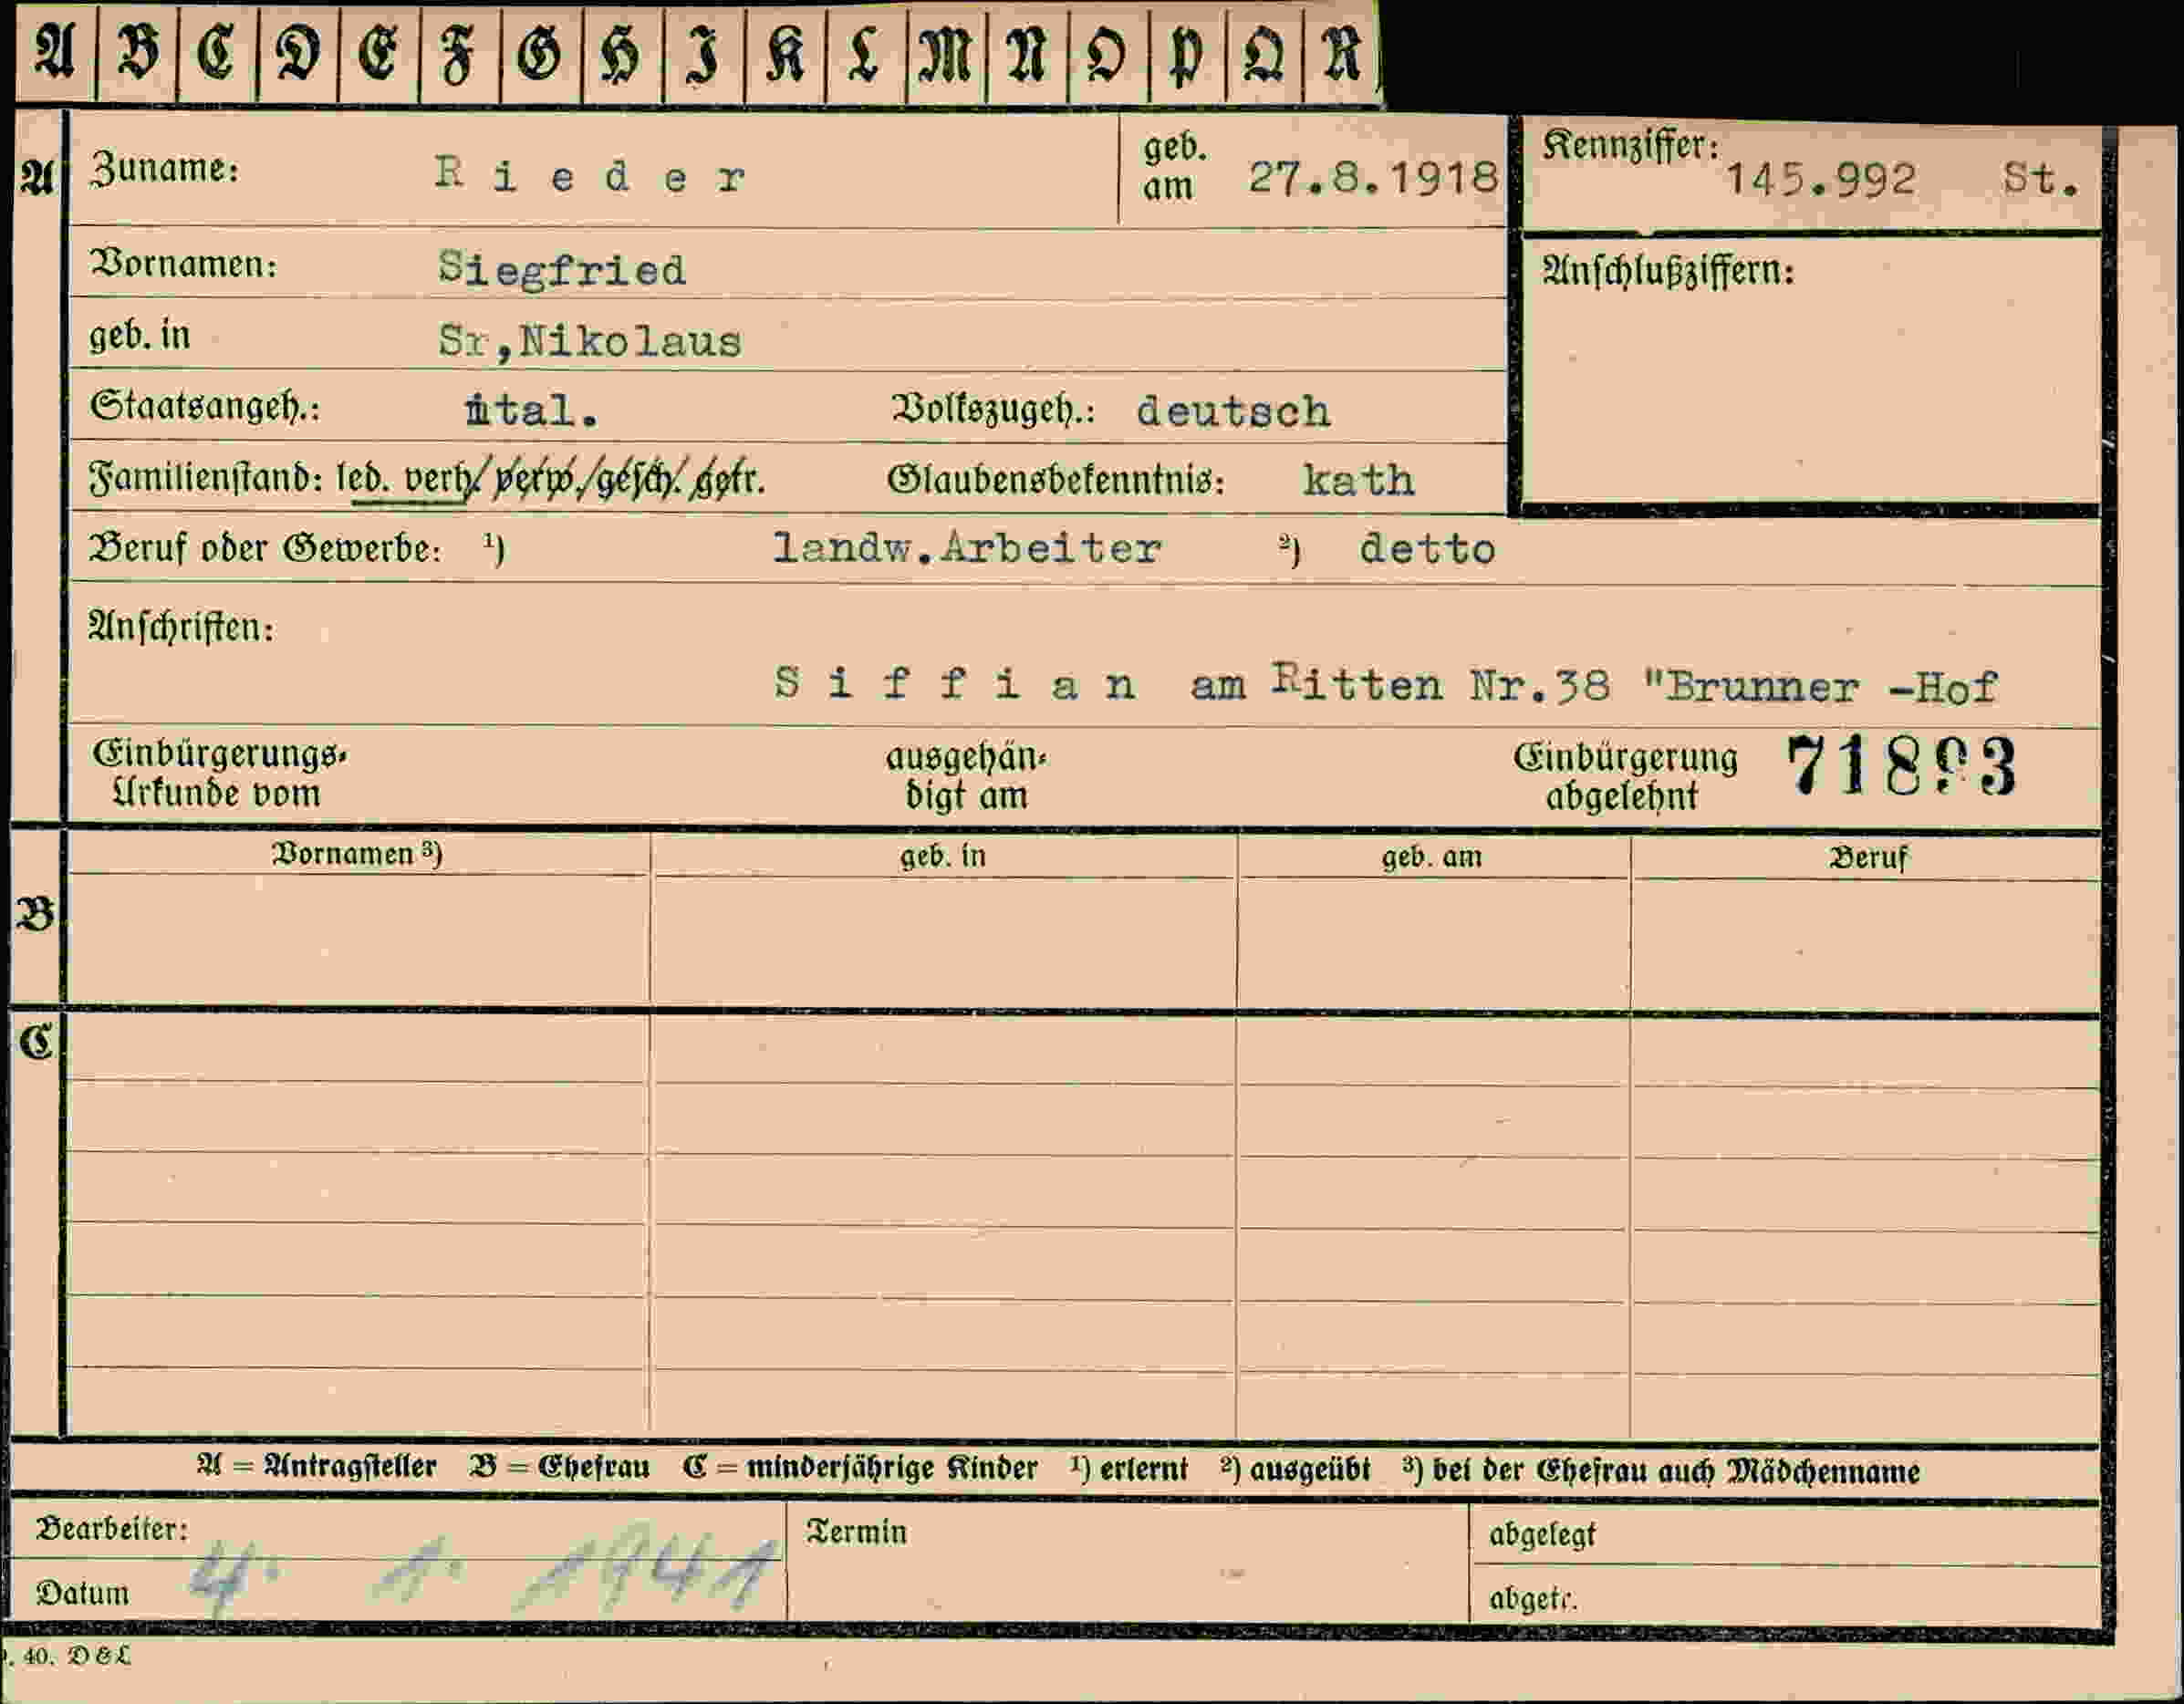 A B C D E F G H I K L M N O P Q R
A Zuname: Rieder geb. am 27.8.1918 Kennziffer: 145.992 St.
Vornamen: Siegfried Anschlußziffern:
geb. in Sr,Nikolaus
Staatsangeh.: ital. Volkszugeh.: deutsch
Familienstand: led. verh. verw. gesch. getr. Glaubensbekenntnis: kath
Beruf oder Gewerbe: ¹) landw.Arbeiter ²) detto
Anschriften:
Siffian am Ritten Nr.38 "Brunner -Hof
Einbürgerungs- ausgehän- Einbürgerung
Urkunde vom digt am abgelehnt
B Vornamen ³) geb. in geb. am Beruf
C
A = Antragsteller B = Ehefrau C = minderjährige Kinder ¹) erlernt ²) ausgeübt ³) bei der Ehefrau auch Mädchenname
Bearbeiter: Termin abgelegt
Datum 4. 1. 1941 abgetr.
40. D & L